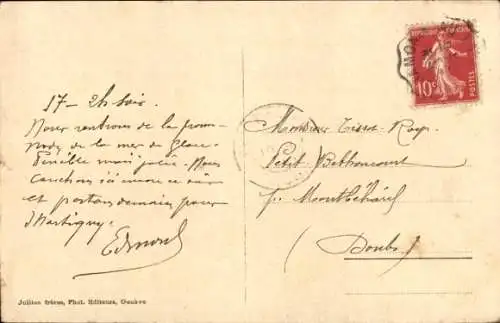 17 - 2h soir.
Nous rentrons de la prome-
nade de la mer de Glace
Pénible mais jolie. Nous
couchons ici encore ce soir
et partons demain pour
Martigny.
Edmond
Monsieur Tissot-
Petit Bethoncourt
pr Montbéliard
(Doubs)
10c
POSTES
Jullien frères, Phot. Editeurs, Genève